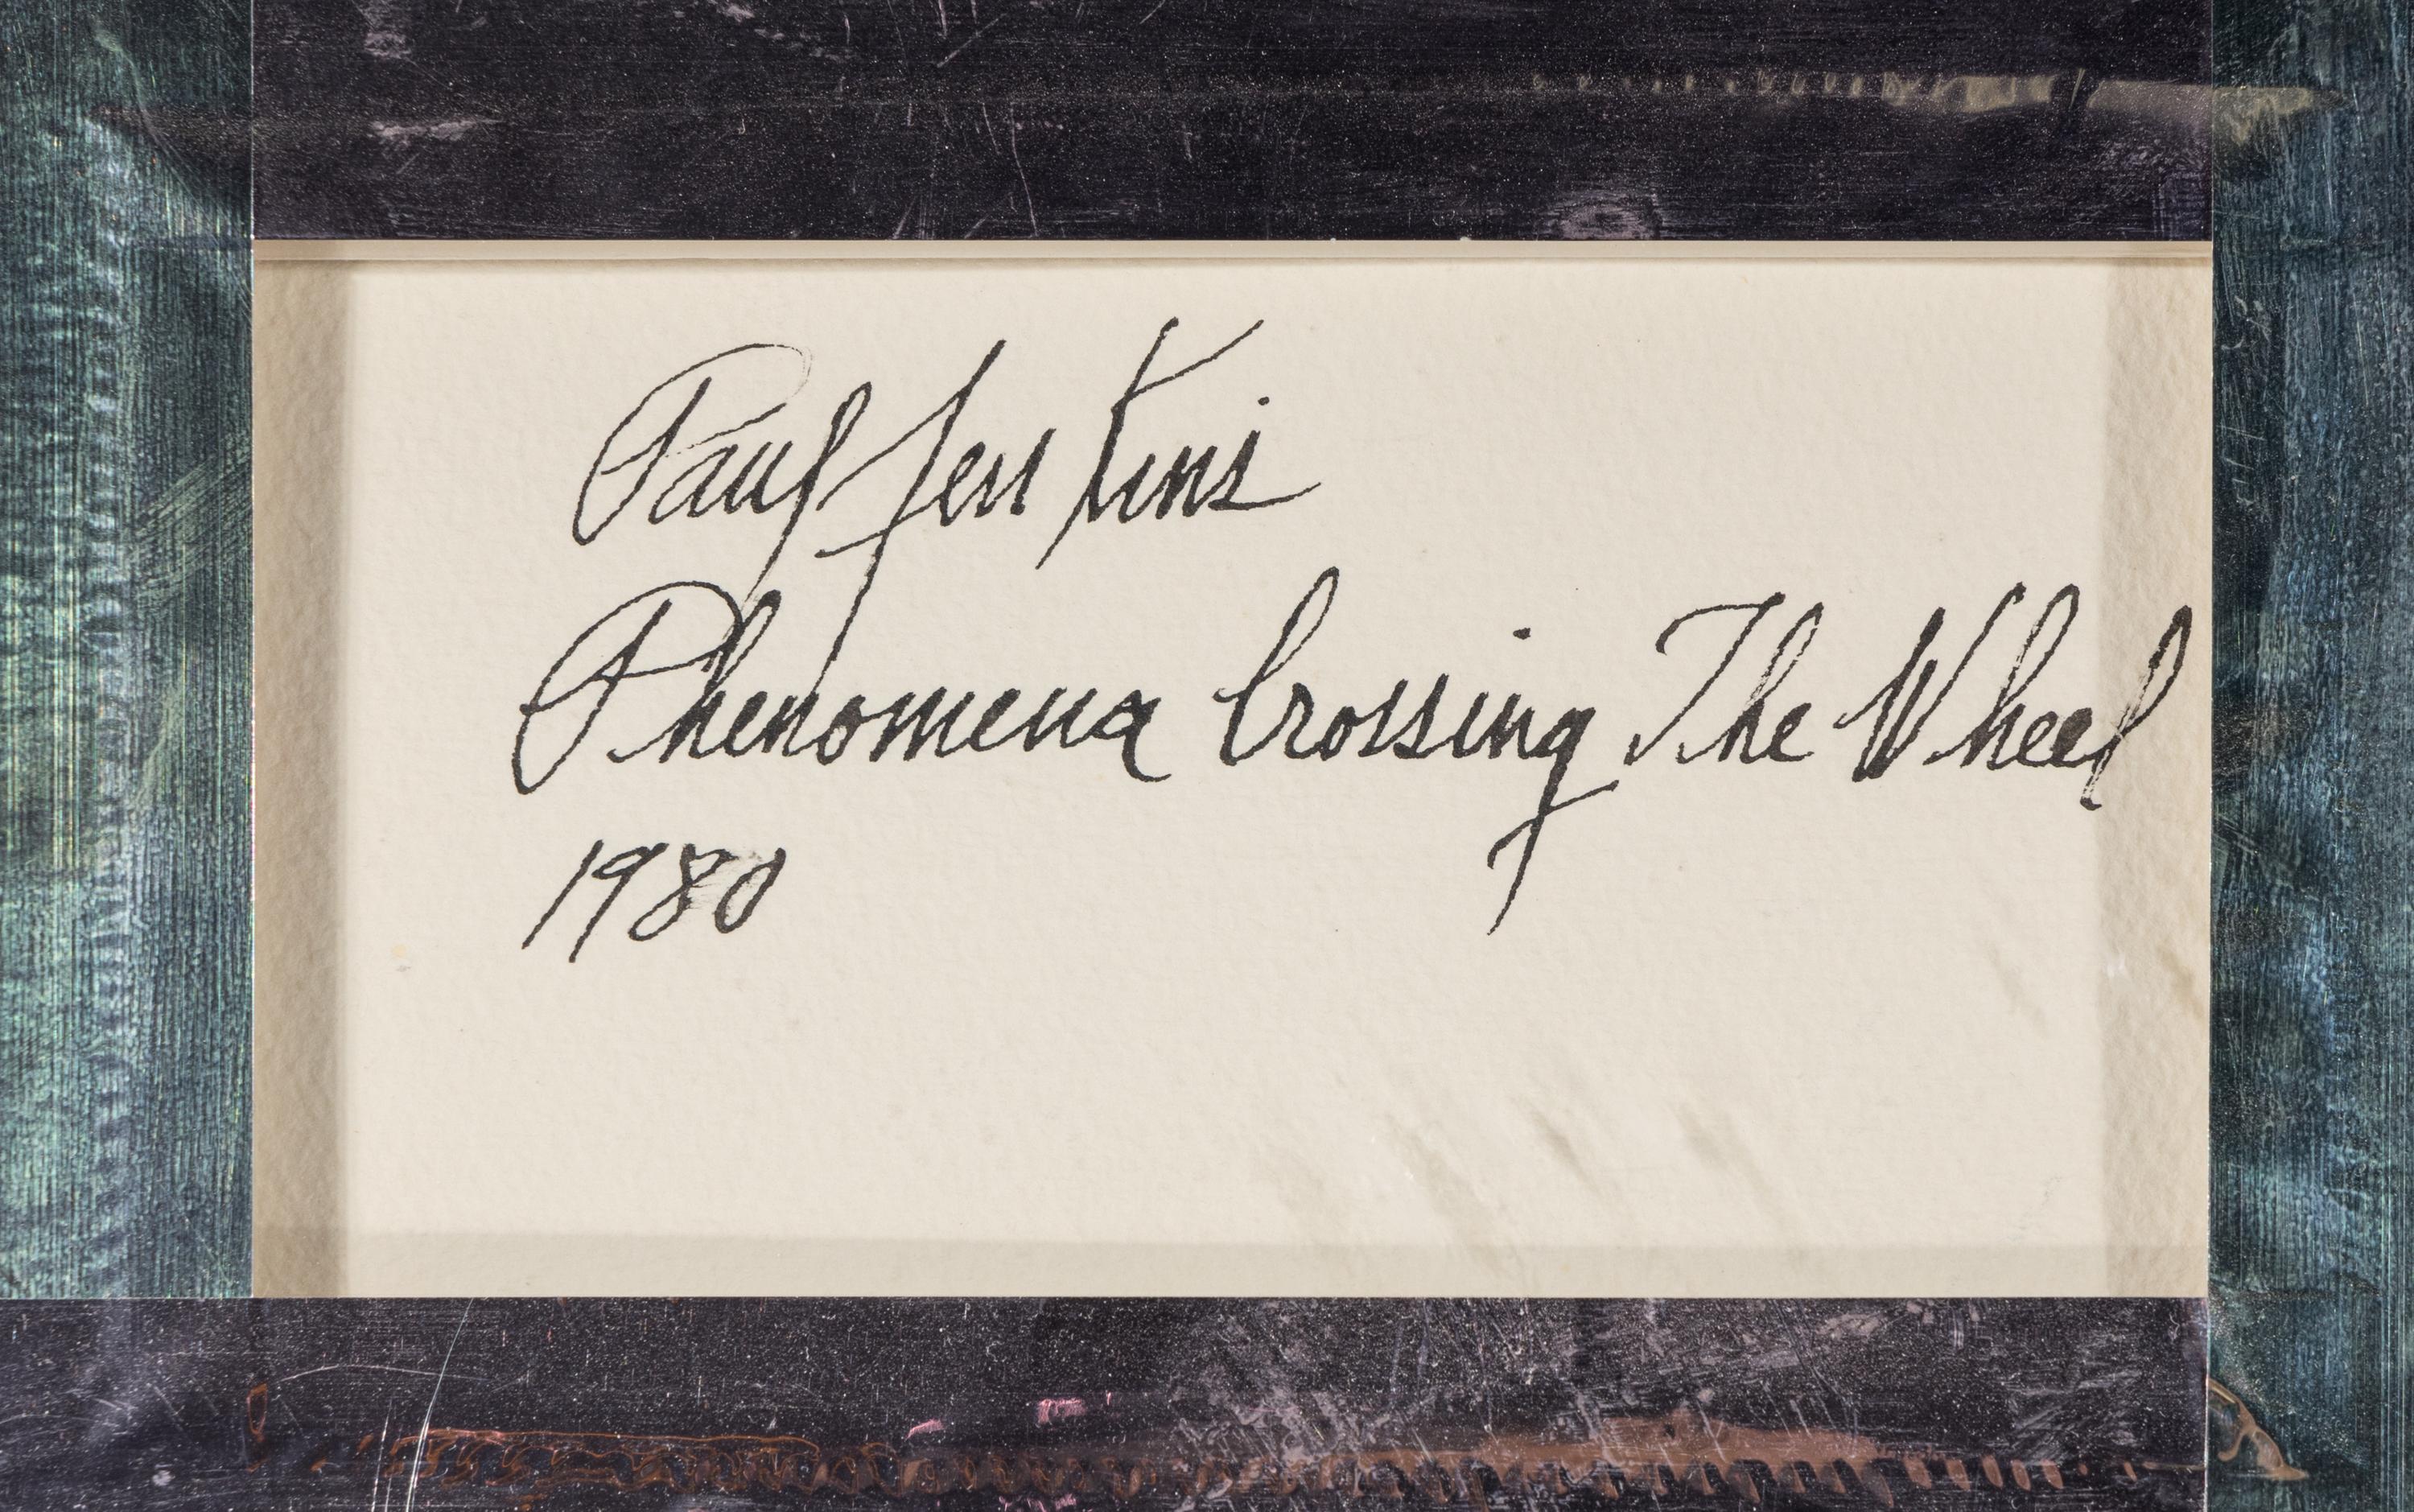 Paul Jenkins
Phenomena Crossing The Wheel
1980